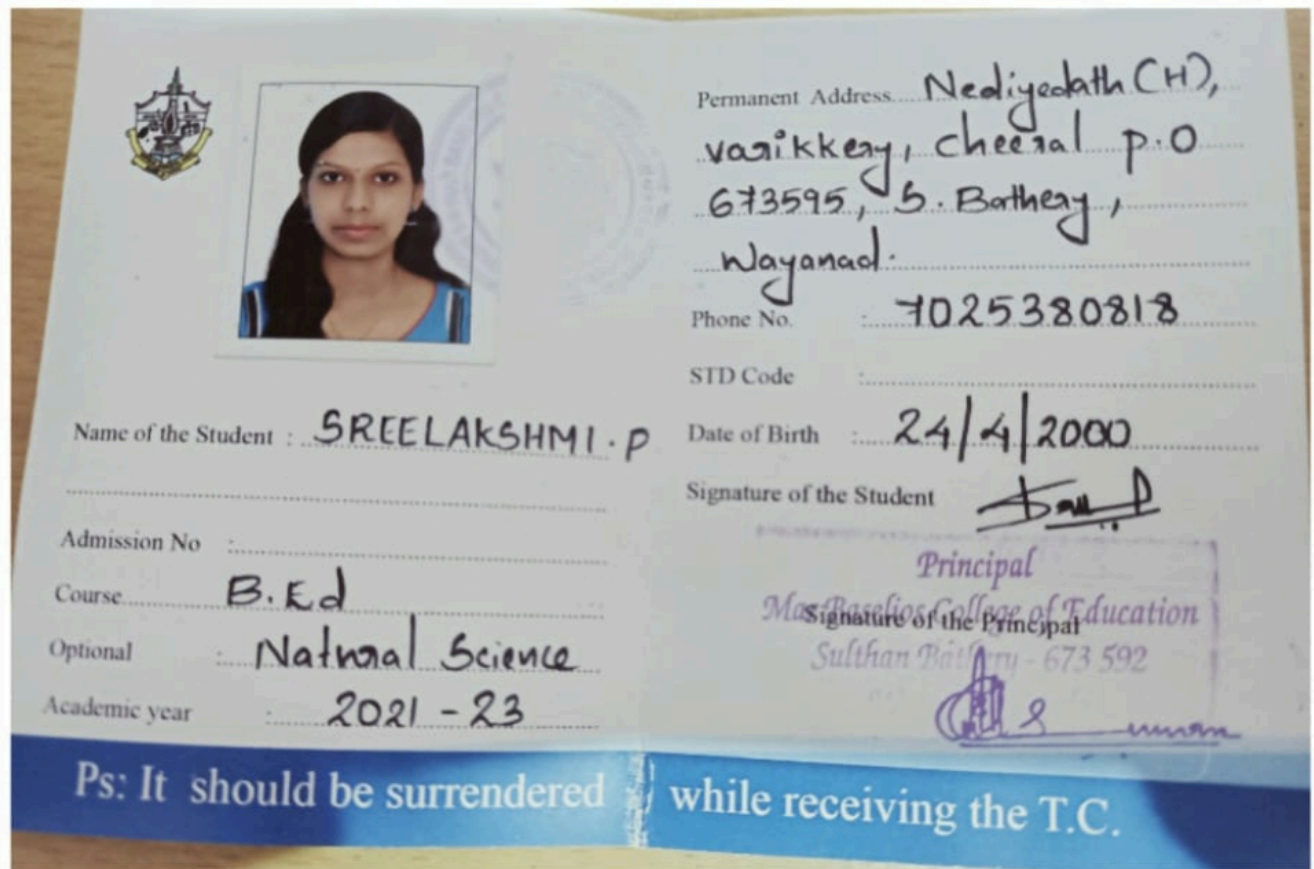 Name of the Student : SREELAKSHMI . P
Admission No :
Course B.Ed
Optional : Natural Science
Academic year : 2021 - 23
Permanent Address Nediyedath (H),
varikkery, cheeral p.o
673595, S. Bathery,
Wayanad.
Phone No. : 7025380818
STD Code :
Date of Birth : 24/4/2000
Signature of the Student
Principal
Mar Baselios College of Education
Signature of the Principal
Sulthan Bathery - 673 592
Ps: It should be surrendered while receiving the T.C.